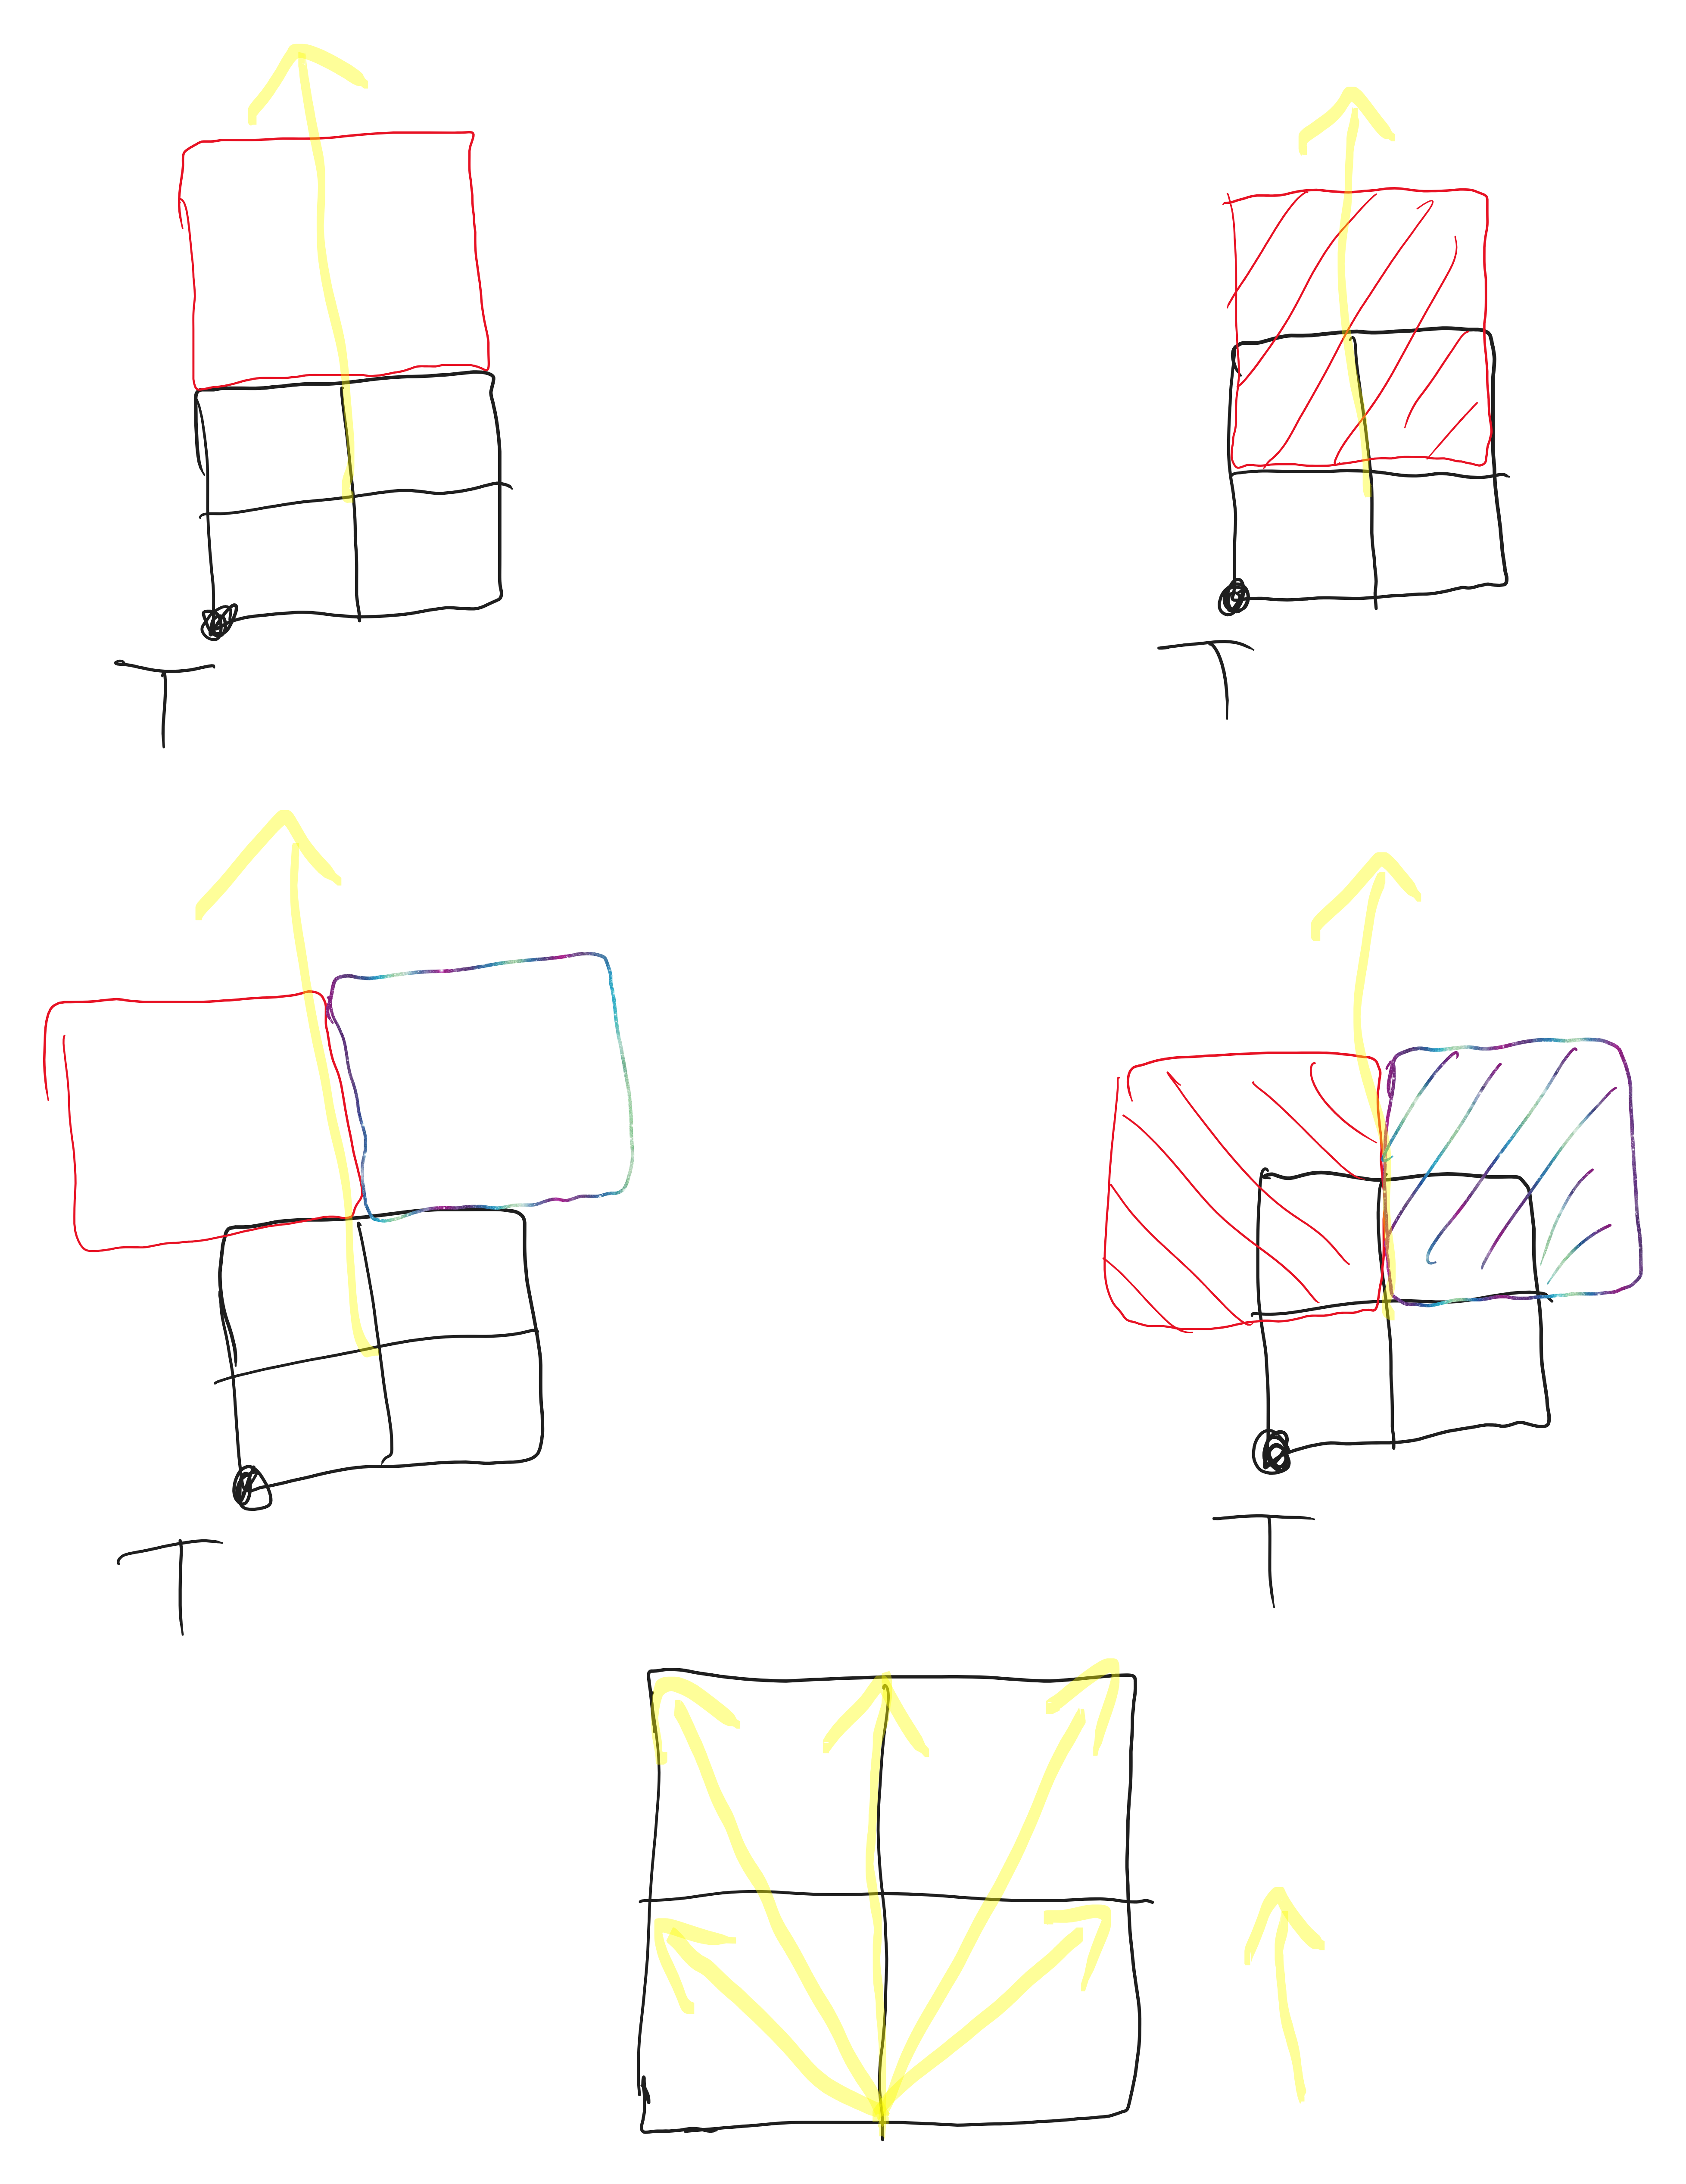 T
T
T
T